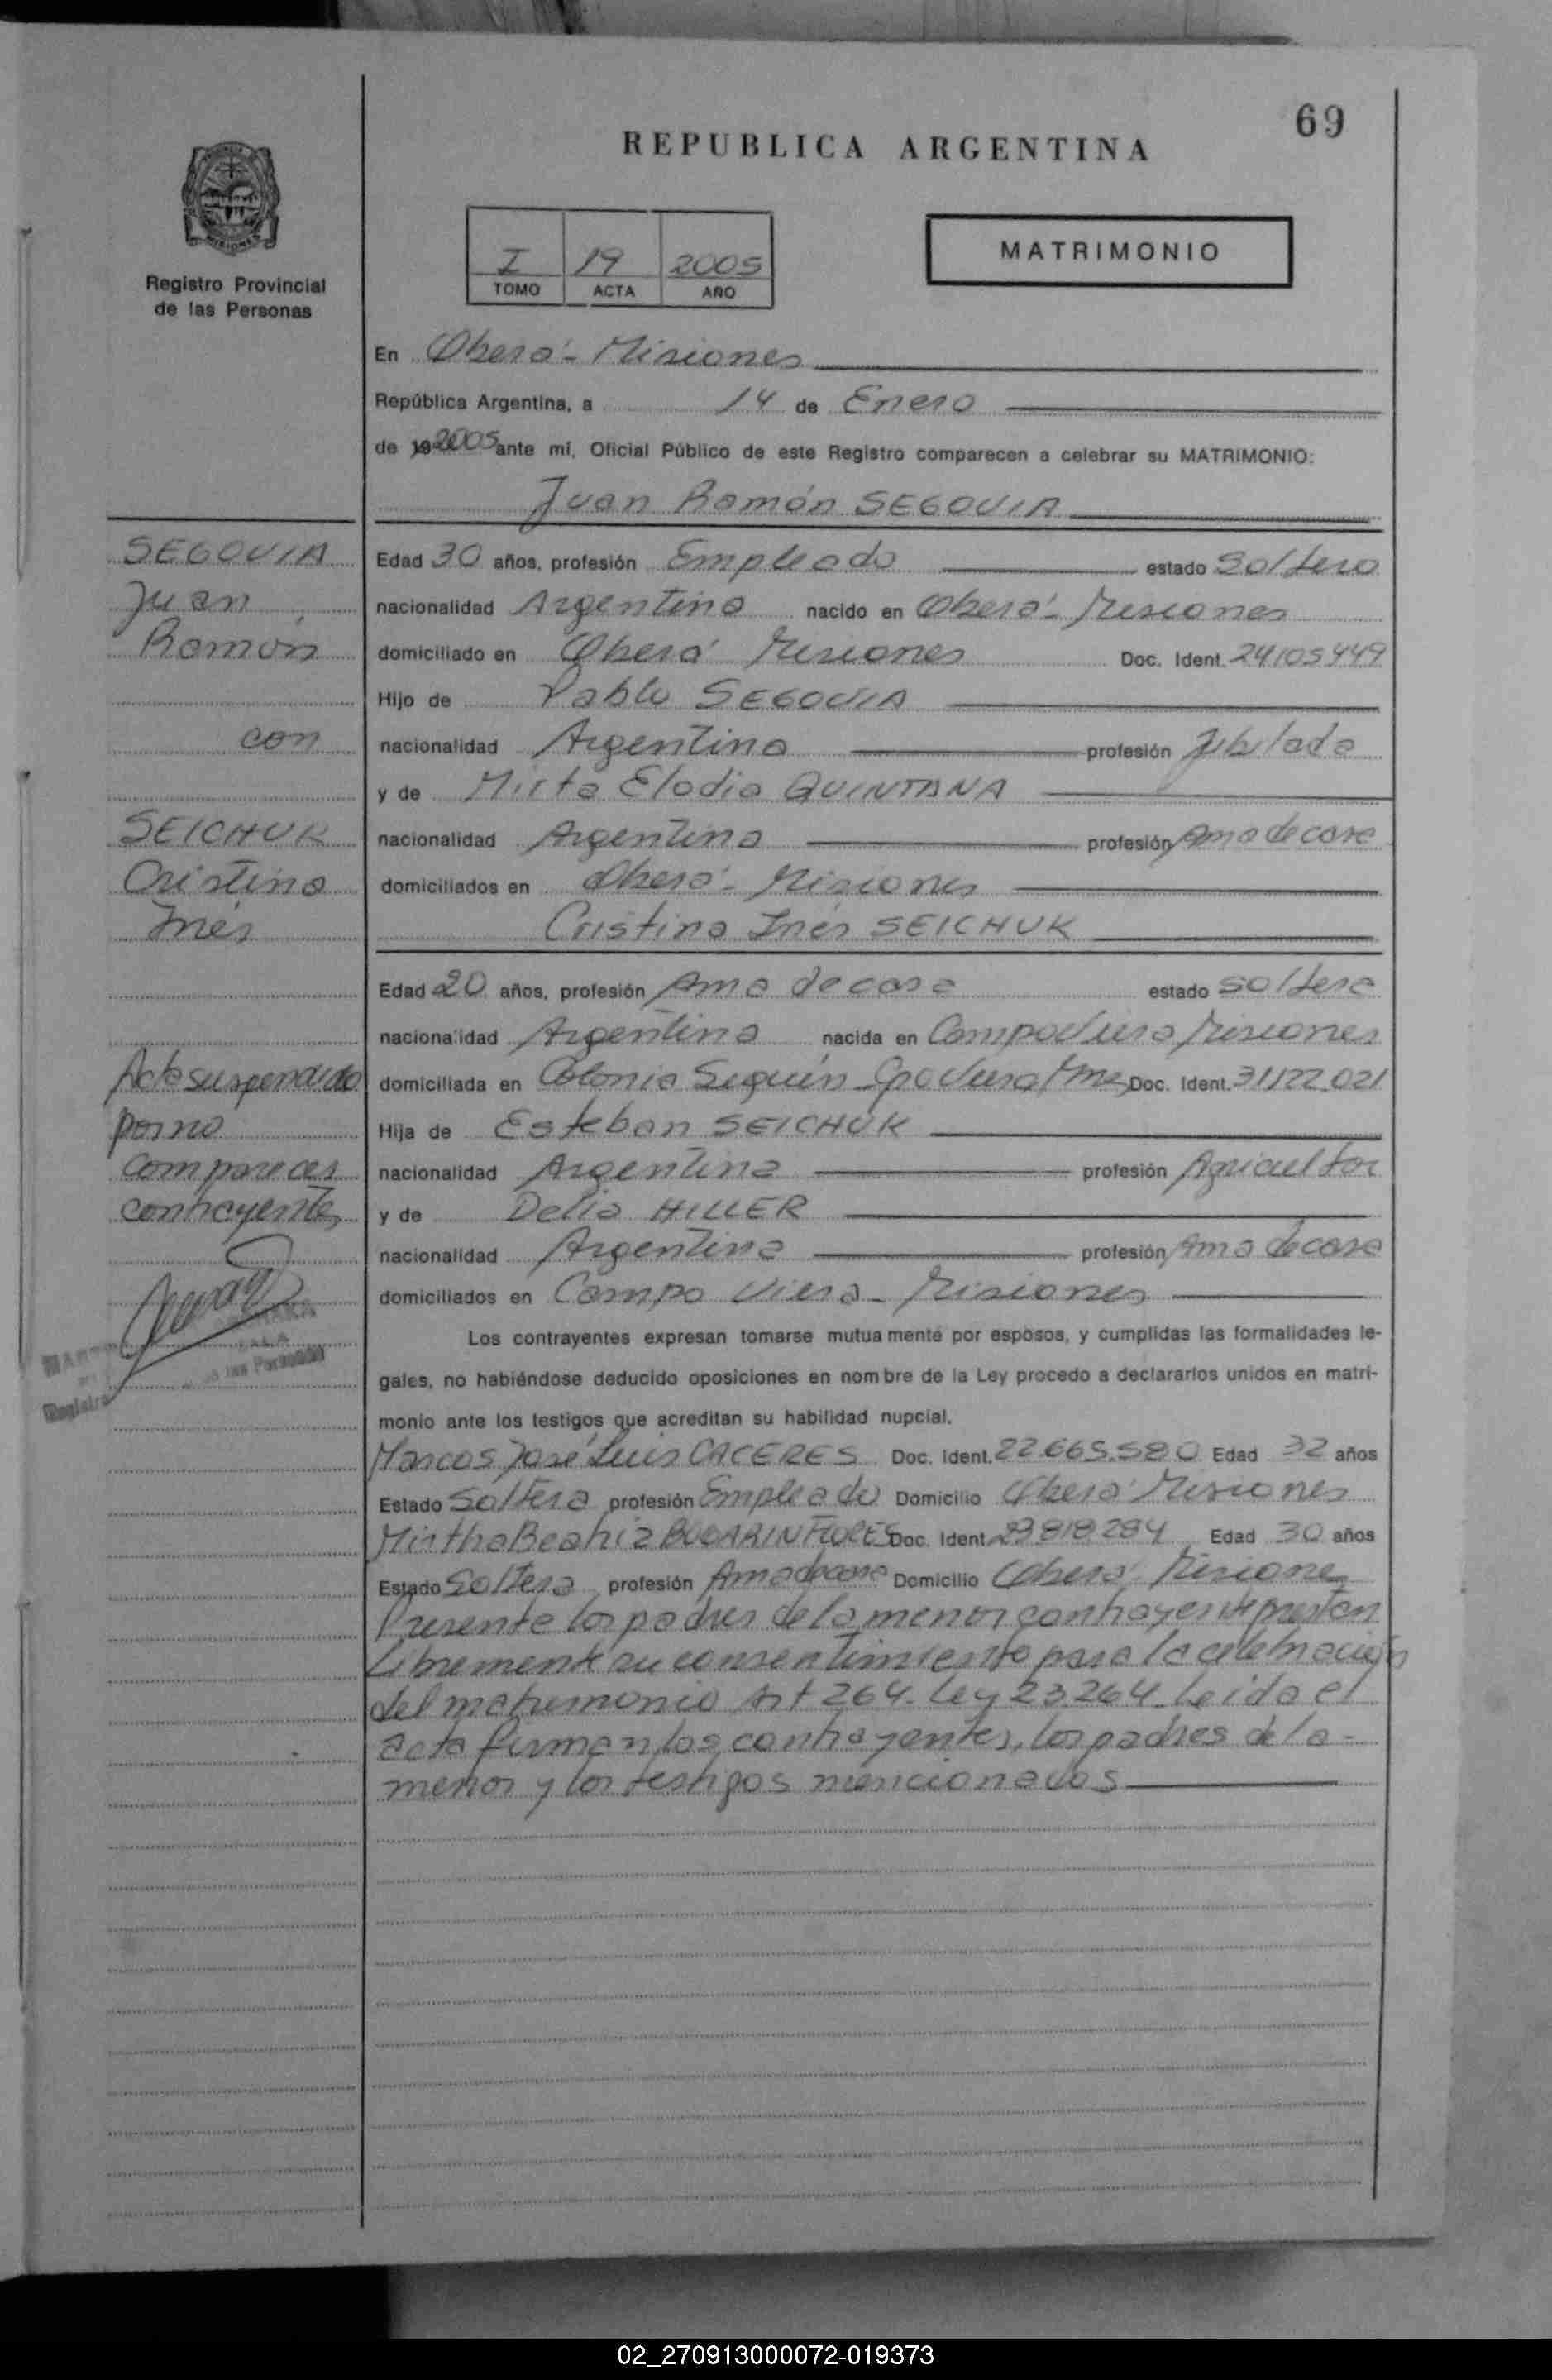 69
REPUBLICA ARGENTINA
I 19 2005
TOMO ACTA AÑO
MATRIMONIO
Registro Provincial
de las Personas
En Oberá - Misiones
República Argentina, a 14 de Enero
de 19 2005 ante mí, Oficial Público de este Registro comparecen a celebrar su MATRIMONIO:
Juan Ramón SEGOVIA
SEGOVIA
Juan
Ramón
con
SEICHUK
Cristina
Inés
Acta suspendida
por no
comparecer
contrayentes
Registro
las Personas
Edad 30 años, profesión Empleado estado Soltero
nacionalidad Argentina nacido en Oberá - Misiones
domiciliado en Oberá Misiones Doc. Ident. 24105449
Hijo de Pablo SEGOVIA
nacionalidad Argentina profesión Jubilado
y de Mirta Elodia QUINTANA
nacionalidad Argentina profesión Ama de casa
domiciliados en Oberá - Misiones
Cristina Inés SEICHUK
Edad 20 años, profesión Ama de casa estado soltera
nacionalidad Argentina nacida en Campo Viera Misiones
domiciliada en Colonia Seguín - Cpo Viera Mnes Doc. Ident. 31122.021
Hija de Esteban SEICHUK
nacionalidad Argentina profesión Agricultor
y de Delia HILLER
nacionalidad Argentina profesión Ama de casa
domiciliados en Campo Viera - Misiones
Los contrayentes expresan tomarse mutuamente por esposos, y cumplidas las formalidades le-
gales, no habiéndose deducido oposiciones en nombre de la Ley procedo a declararlos unidos en matri-
monio ante los testigos que acreditan su habilidad nupcial.
Marcos José Luis CACERES Doc. Ident. 22.665.580 Edad 32 años
Estado Soltero profesión Empleado Domicilio Oberá Misiones
Mirtha Beatriz BOGARIN FLORES Doc. Ident. 23818284 Edad 30 años
Estado Soltera profesión Ama de casa Domicilio Oberá Misiones
Presente los padres de la menor contrayente prestan
Libremente su consentimiento para la celebración
del matrimonio Art 264. Ley 23.264. Leida el
acta firman los contrayentes, los padres de la -
menor y los testigos mencionados
02_270913000072-019373